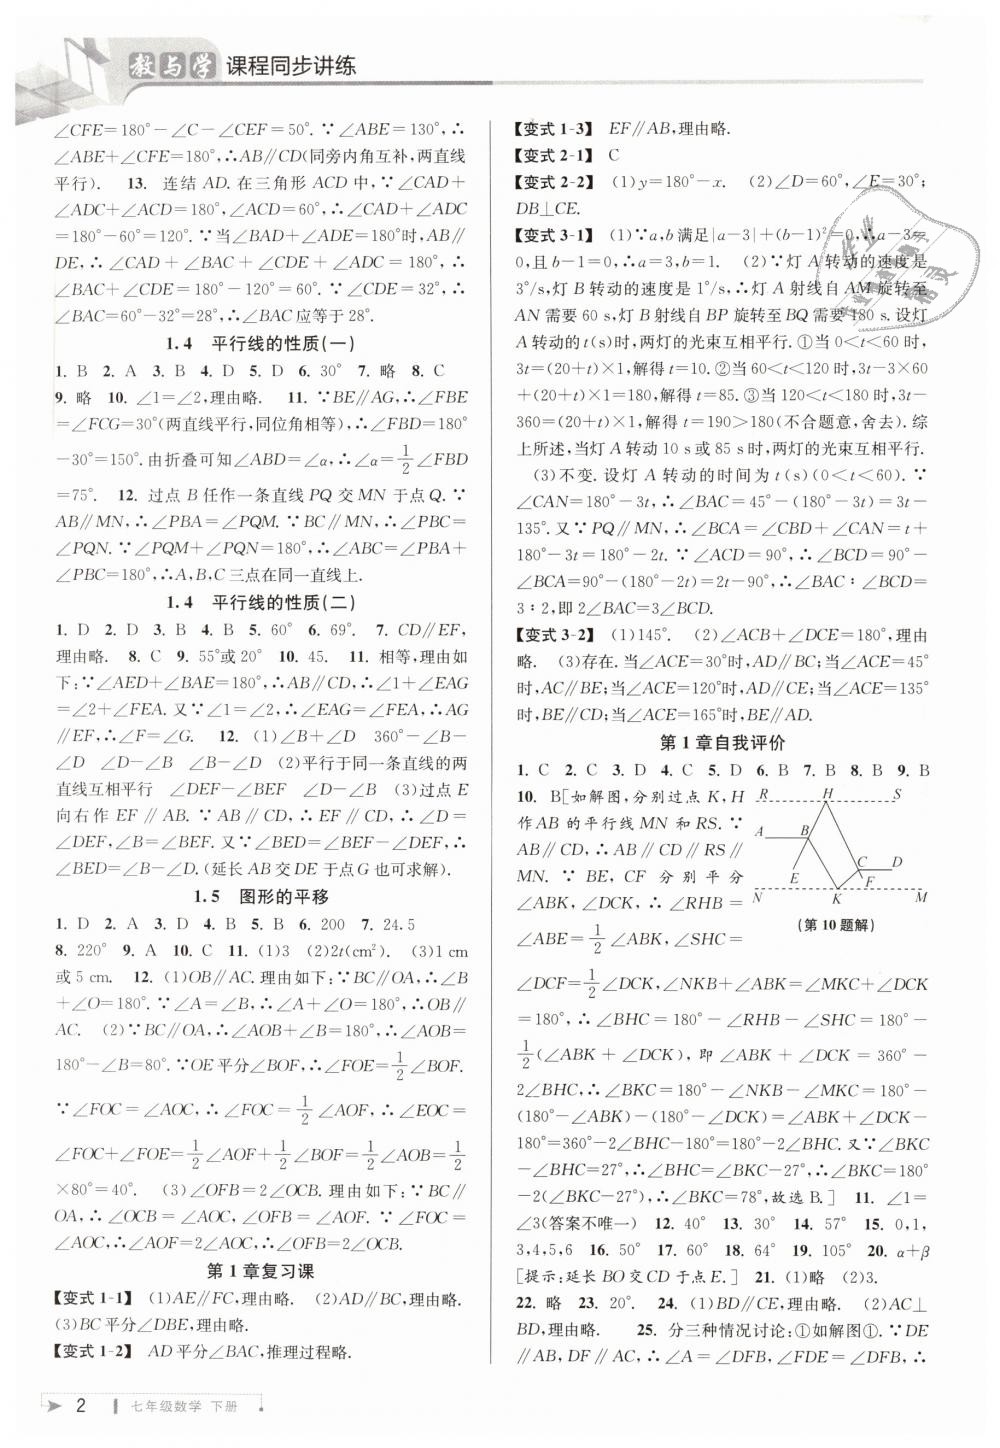 教与学 课程同步讲练
∠CFE=180°-∠C-∠CEF=50°. ∵∠ABE=130°,∴
∠ABE+∠CFE=180°,∴AB∥CD(同旁内角互补,两直线
平行). 13. 连结 AD. 在三角形 ACD 中,∵∠CAD+
∠ADC+∠ACD=180°,∠ACD=60°,∴∠CAD+∠ADC
=180°-60°=120°. ∵当∠BAD+∠ADE=180°时,AB∥
DE,∴∠CAD+∠BAC+∠CDE+∠ADC=180°,∴
∠BAC+∠CDE=180°-120°=60°. ∵∠CDE=32°,∴
∠BAC=60°-32°=28°,∴∠BAC应等于28°.
1.4 平行线的性质(一)
1. B 2. A 3. B 4. D 5. D 6. 30° 7. 略 8. C
9. 略 10. ∠1=∠2,理由略. 11. ∵BE∥AG,∴∠FBE
=∠FCG=30°(两直线平行,同位角相等),∴∠FBD=180°
-30°=150°. 由折叠可知∠ABD=∠α,∴∠α=1/2∠FBD
=75°. 12. 过点 B 任作一条直线 PQ 交 MN 于点 Q. ∵
AB∥MN,∴∠PBA=∠PQM. ∵BC∥MN,∴∠PBC=
∠PQN. ∵∠PQM+∠PQN=180°,∴∠ABC=∠PBA+
∠PBC=180°,∴A,B,C三点在同一直线上.
1.4 平行线的性质(二)
1. D 2. D 3. B 4. B 5. 60° 6. 69°. 7. CD∥EF,
理由略. 8. C 9. 55°或20° 10. 45. 11. 相等,理由如
下:∵∠AED+∠BAE=180°,∴AB∥CD,∴∠1+∠EAG
=∠2+∠FEA. 又∵∠1=∠2,∴∠EAG=∠FEA,∴AG
∥EF,∴∠F=∠G. 12. (1)∠B+∠D 360°-∠B-
∠D ∠D-∠B ∠B-∠D (2)平行于同一条直线的两
直线互相平行 ∠DEF-∠BEF ∠D-∠B (3)过点 E
向右作 EF∥AB. ∵AB∥CD,∴EF∥CD,∴∠D=
∠DEF,∠B=∠BEF. 又∵∠BED=∠BEF-∠DEF,∴
∠BED=∠B-∠D.(延长 AB 交 DE 于点 G 也可求解).
1.5 图形的平移
1. D 2. A 3. D 4. B 5. B 6. 200 7. 24.5
8. 220° 9. A 10. C 11. (1)3 (2)2t(cm²). (3)1 cm
或 5 cm. 12. (1)OB∥AC. 理由如下:∵BC∥OA,∴∠B
+∠O=180°. ∵∠A=∠B,∴∠A+∠O=180°,∴OB∥
AC. (2)∵BC∥OA,∴∠AOB+∠B=180°,∴∠AOB=
180°-∠B=80°. ∵OE平分∠BOF,∴∠FOE=1/2∠BOF.
∵∠FOC=∠AOC,∴∠FOC=1/2∠AOF,∴∠EOC=
∠FOC+∠FOE=1/2∠AOF+1/2∠BOF=1/2∠AOB=1/2
×80°=40°. (3)∠OFB=2∠OCB. 理由如下:∵BC∥
OA,∴∠OCB=∠AOC,∠OFB=∠AOF. ∵∠FOC=
∠AOC,∴∠AOF=2∠AOC,∴∠OFB=2∠OCB.
第 1 章复习课
【变式 1-1】 (1)AE∥FC,理由略. (2)AD∥BC,理由略.
(3)BC平分∠DBE,理由略.
【变式 1-2】 AD平分∠BAC,推理过程略.
【变式 1-3】 EF∥AB,理由略.
【变式 2-1】 C
【变式 2-2】 (1)y=180°-x. (2)∠D=60°,∠E=30°;
DB⊥CE.
【变式 3-1】 (1)∵a,b满足|a-3|+(b-1)²=0,∴a-3=
0,且 b-1=0,∴a=3,b=1. (2)∵灯 A 转动的速度是
3°/s,灯 B 转动的速度是 1°/s,∴灯 A 射线自 AM 旋转至
AN 需要 60 s,灯 B 射线自 BP 旋转至 BQ 需要 180 s. 设灯
A 转动的 t(s)时,两灯的光束互相平行. ①当 0<t<60 时,
3t=(20+t)×1,解得 t=10. ②当 60<t<120 时,3t-3×60
+(20+t)×1=180,解得 t=85. ③当 120<t<180 时,3t-
360=(20+t)×1,解得 t=190>180(不合题意,舍去). 综
上所述,当灯 A 转动 10 s 或 85 s 时,两灯的光束互相平行.
(3)不变. 设灯 A 转动的时间为 t(s)(0<t<60). ∵
∠CAN=180°-3t,∴∠BAC=45°-(180°-3t)=3t-
135°. 又∵PQ∥MN,∴∠BCA=∠CBD+∠CAN=t+
180°-3t=180°-2t. ∵∠ACD=90°,∴∠BCD=90°-
∠BCA=90°-(180°-2t)=2t-90°,∴∠BAC∶∠BCD=
3∶2,即 2∠BAC=3∠BCD.
【变式 3-2】 (1)145°. (2)∠ACB+∠DCE=180°,理由
略. (3)存在. 当∠ACE=30°时,AD∥BC;当∠ACE=45°
时,AC∥BE;当∠ACE=120°时,AD∥CE;当∠ACE=135°
时,BE∥CD;当∠ACE=165°时,BE∥AD.
第 1 章自我评价
1. C 2. C 3. D 4. C 5. D 6. B 7. B 8. B 9. B
10. B[如解图,分别过点 K,H
作AB 的平行线 MN 和 RS. ∵
AB∥CD,∴AB∥CD∥RS∥
MN. ∵ BE, CF 分别平分
∠ABK,∠DCK,∴∠RHB=
∠ABE=1/2∠ABK,∠SHC=
R H S
A B
C D
E F
N K M
(第 10 题解)
∠DCF=1/2∠DCK,∠NKB+∠ABK=∠MKC+∠DCK
=180°,∴∠BHC=180°-∠RHB-∠SHC=180°-
1/2(∠ABK+∠DCK),即∠ABK+∠DCK=360°-
2∠BHC,∴∠BKC=180°-∠NKB-∠MKC=180°-
(180°-∠ABK)-(180°-∠DCK)=∠ABK+∠DCK-
180°=360°-2∠BHC-180°=180°-2∠BHC. 又∵∠BKC
-∠BHC=27°,∴∠BHC=∠BKC-27°,∴∠BKC=180°
-2(∠BKC-27°),∴∠BKC=78°,故选 B.] 11. ∠1=
∠3(答案不唯一) 12. 40° 13. 30° 14. 57° 15. 0,1,
3,4,5,6 16. 50° 17. 60° 18. 64° 19. 105° 20. α+β
[提示:延长 BO 交 CD 于点 E.] 21. (1)略 (2)3.
22. 略 23. 20°. 24. (1)BD∥CE,理由略. (2)AC⊥
BD,理由略. 25. 分三种情况讨论:①如解图①. ∵DE
∥AB,DF∥AC,∴∠A=∠DFB,∠FDE=∠DFB,∴
2 七年级数学 下册